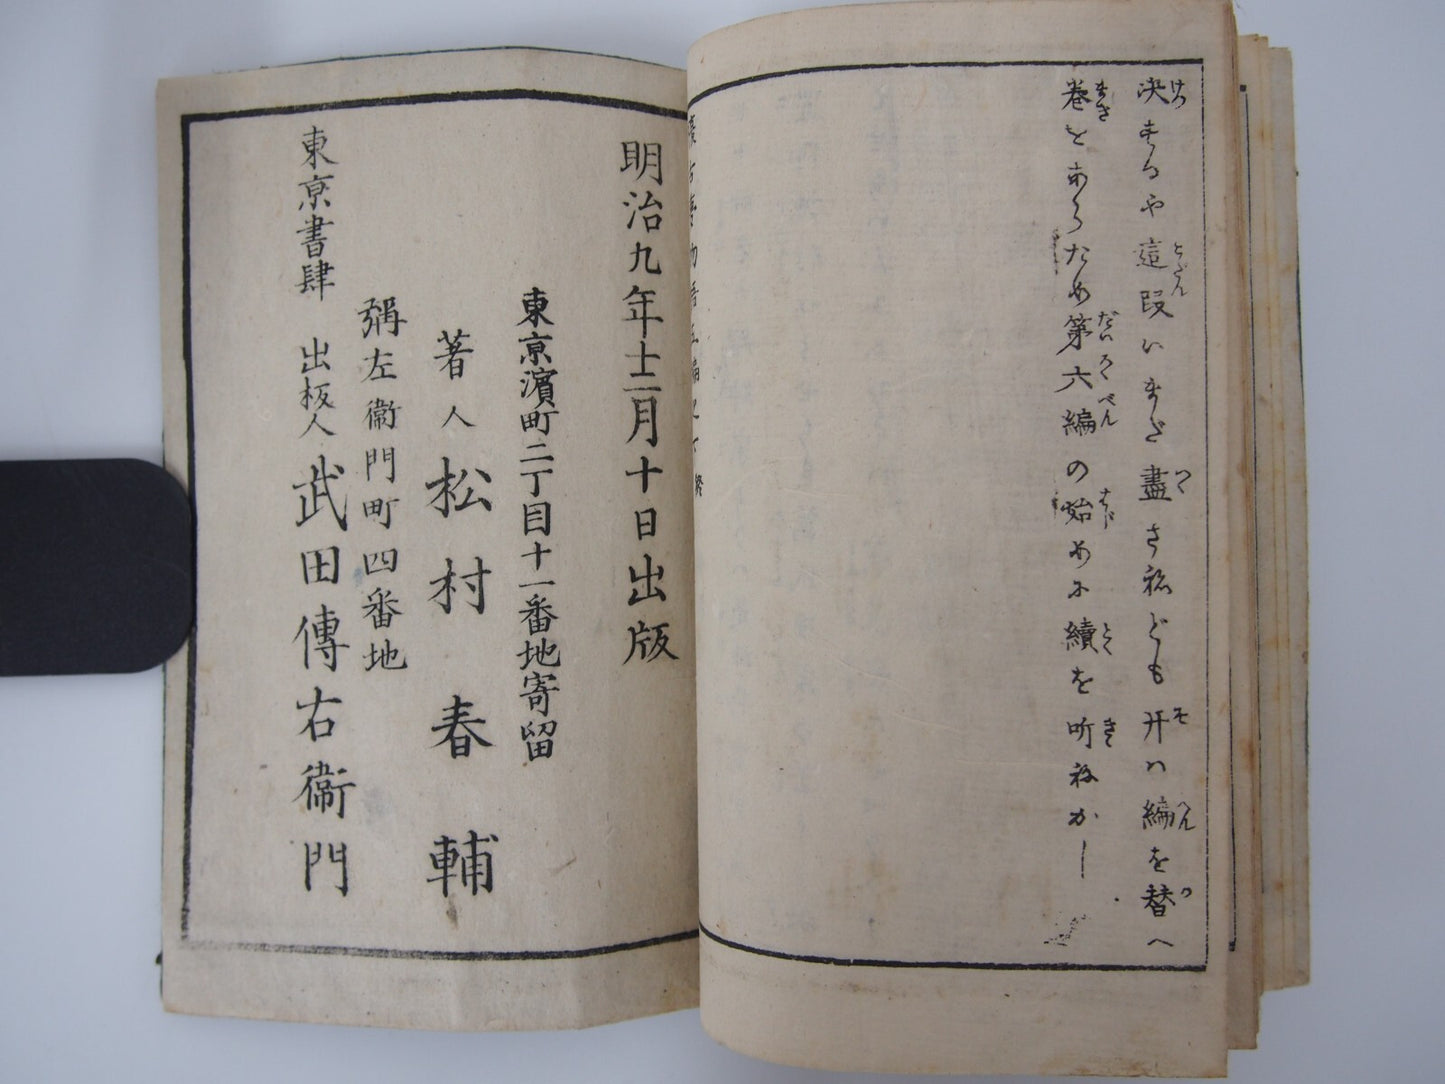 決するや這段いまだ盡されども开ハ編を替へ
巻をあらため第六編の始めに續を听ねかし
明治九年十二月十日出版
東亰濱町二丁目十一番地寄留
著人 松村春輔
弼左衞門町四番地
東亰書肆 出板人 武田傳右衞門